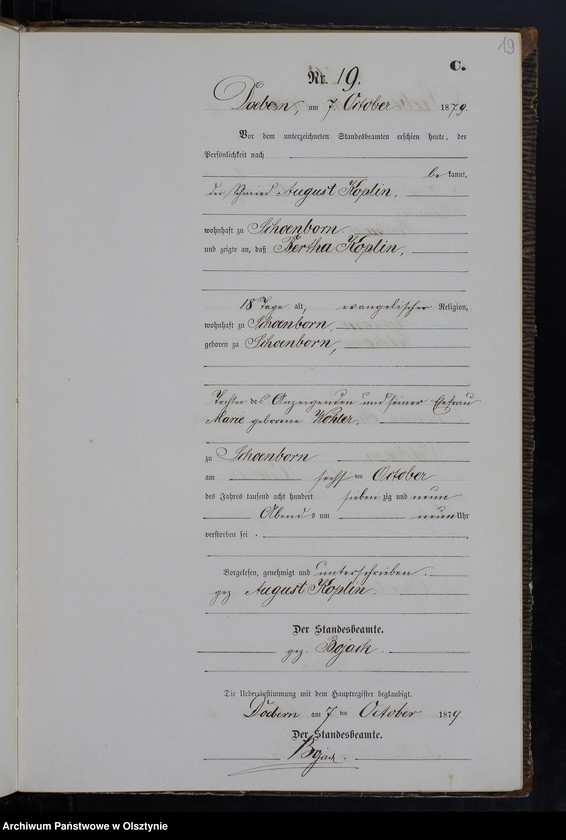 19
C.
Nr. 19.
Doebern, am 7. October 1879.
Vor dem unterzeichneten Standesbeamten erschien heute, der
Persönlichkeit nach
bekannt,
der Schmied August Koplin,
wohnhaft zu Schoenborn
und zeigte an, daß Bertha Koplin,
18 Tage alt, evangelischer Religion,
wohnhaft zu Schoenborn,
geboren zu Schoenborn,
Tochter des Anzeigenden und seiner Ehefrau
Marie geborene Köhler,
zu Schoenborn
am sechsten October
des Jahres tausend acht hundert siebenzig und neun
Abends um neun Uhr
verstorben sei.
Vorgelesen, genehmigt und unterschrieben.
gez. August Koplin.
Der Standesbeamte.
gez. Bojack
Die Uebereinstimmung mit dem Hauptregister beglaubigt.
Döbern am 7ten October 1879
Der Standesbeamte.
Bojack.
Archiwum Państwowe w Olsztynie